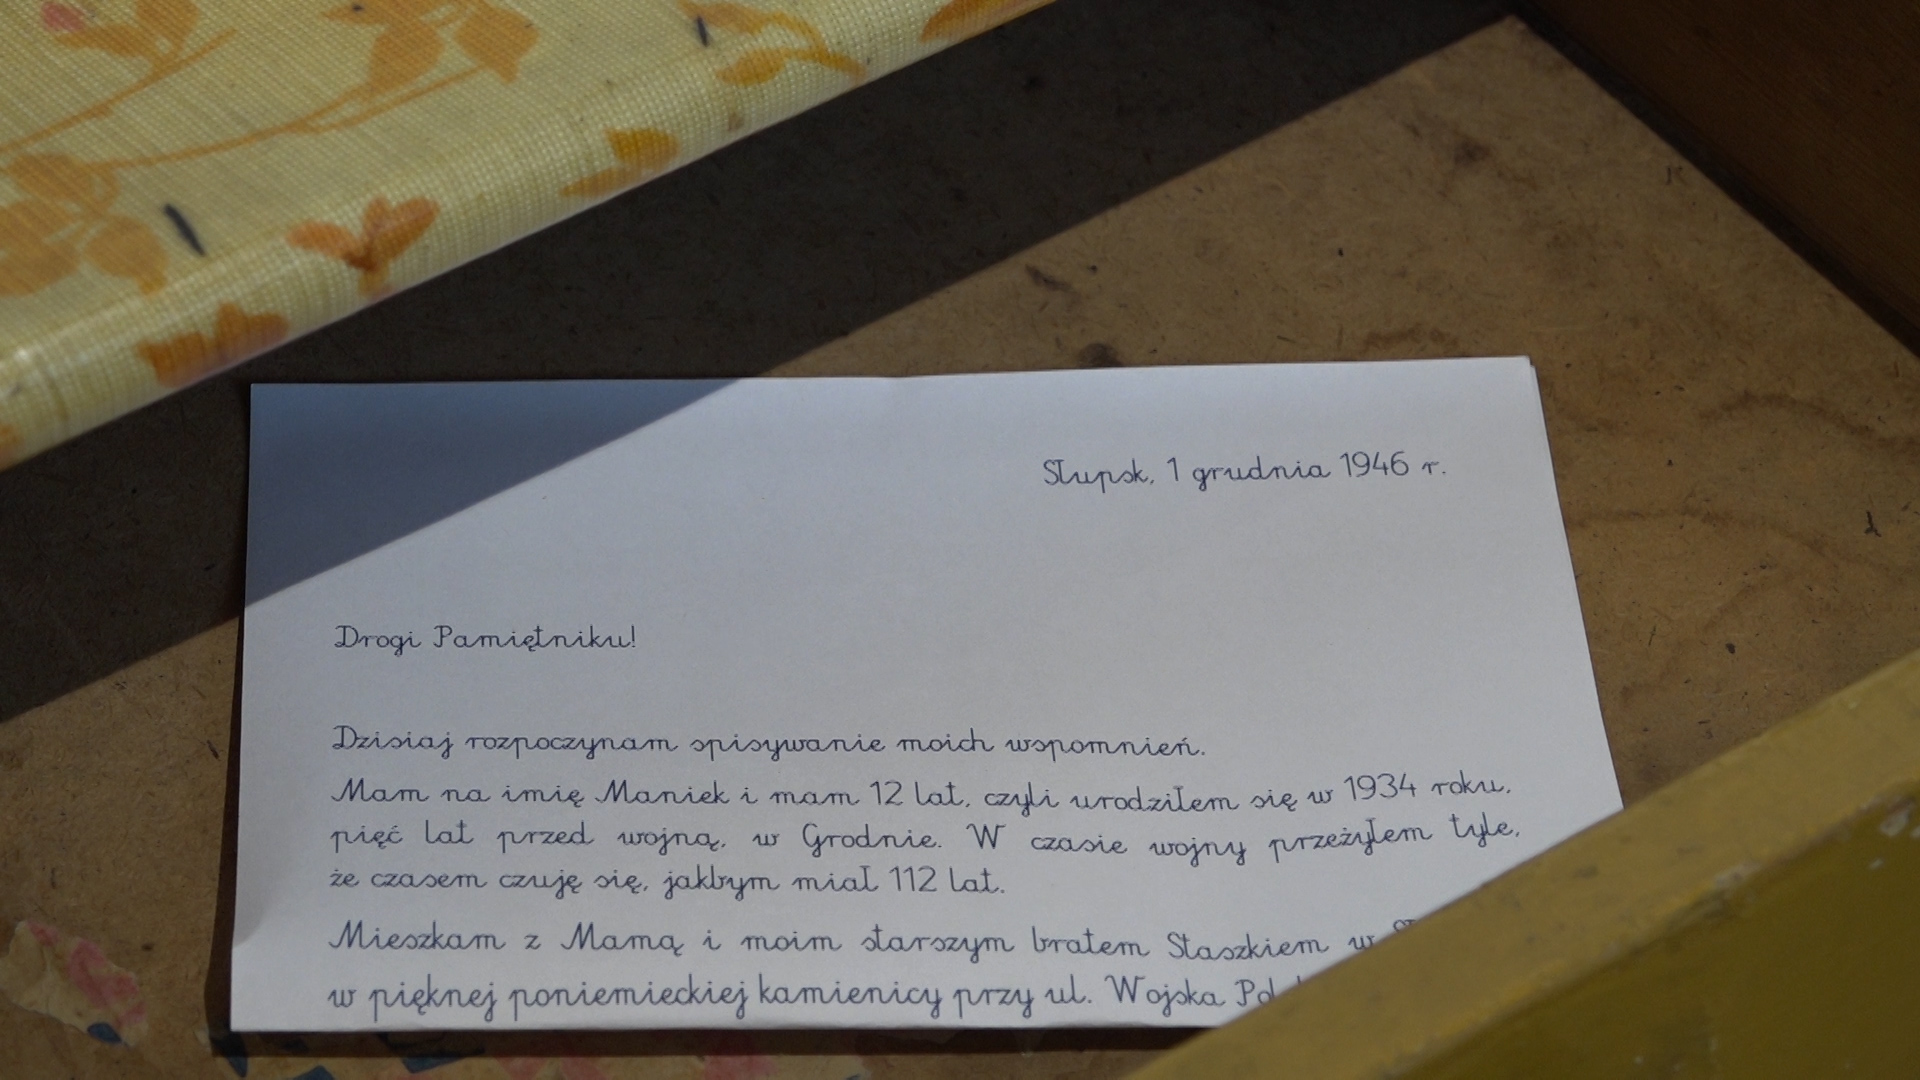 Słupsk, 1 grudnia 1946 r.
Drogi Pamiętniku!
Dzisiaj rozpoczynam spisywanie moich wspomnień.
Mam na imię Maniek i mam 12 lat, czyli urodziłem się w 1934 roku,
pięć lat przed wojną, w Grodnie. W czasie wojny przeżyłem tyle,
że czasem czuję się, jakbym miał 112 lat.
Mieszkam z Mamą i moim starszym bratem Staszkiem w
w pięknej poniemieckiej kamienicy przy ul. Wojska